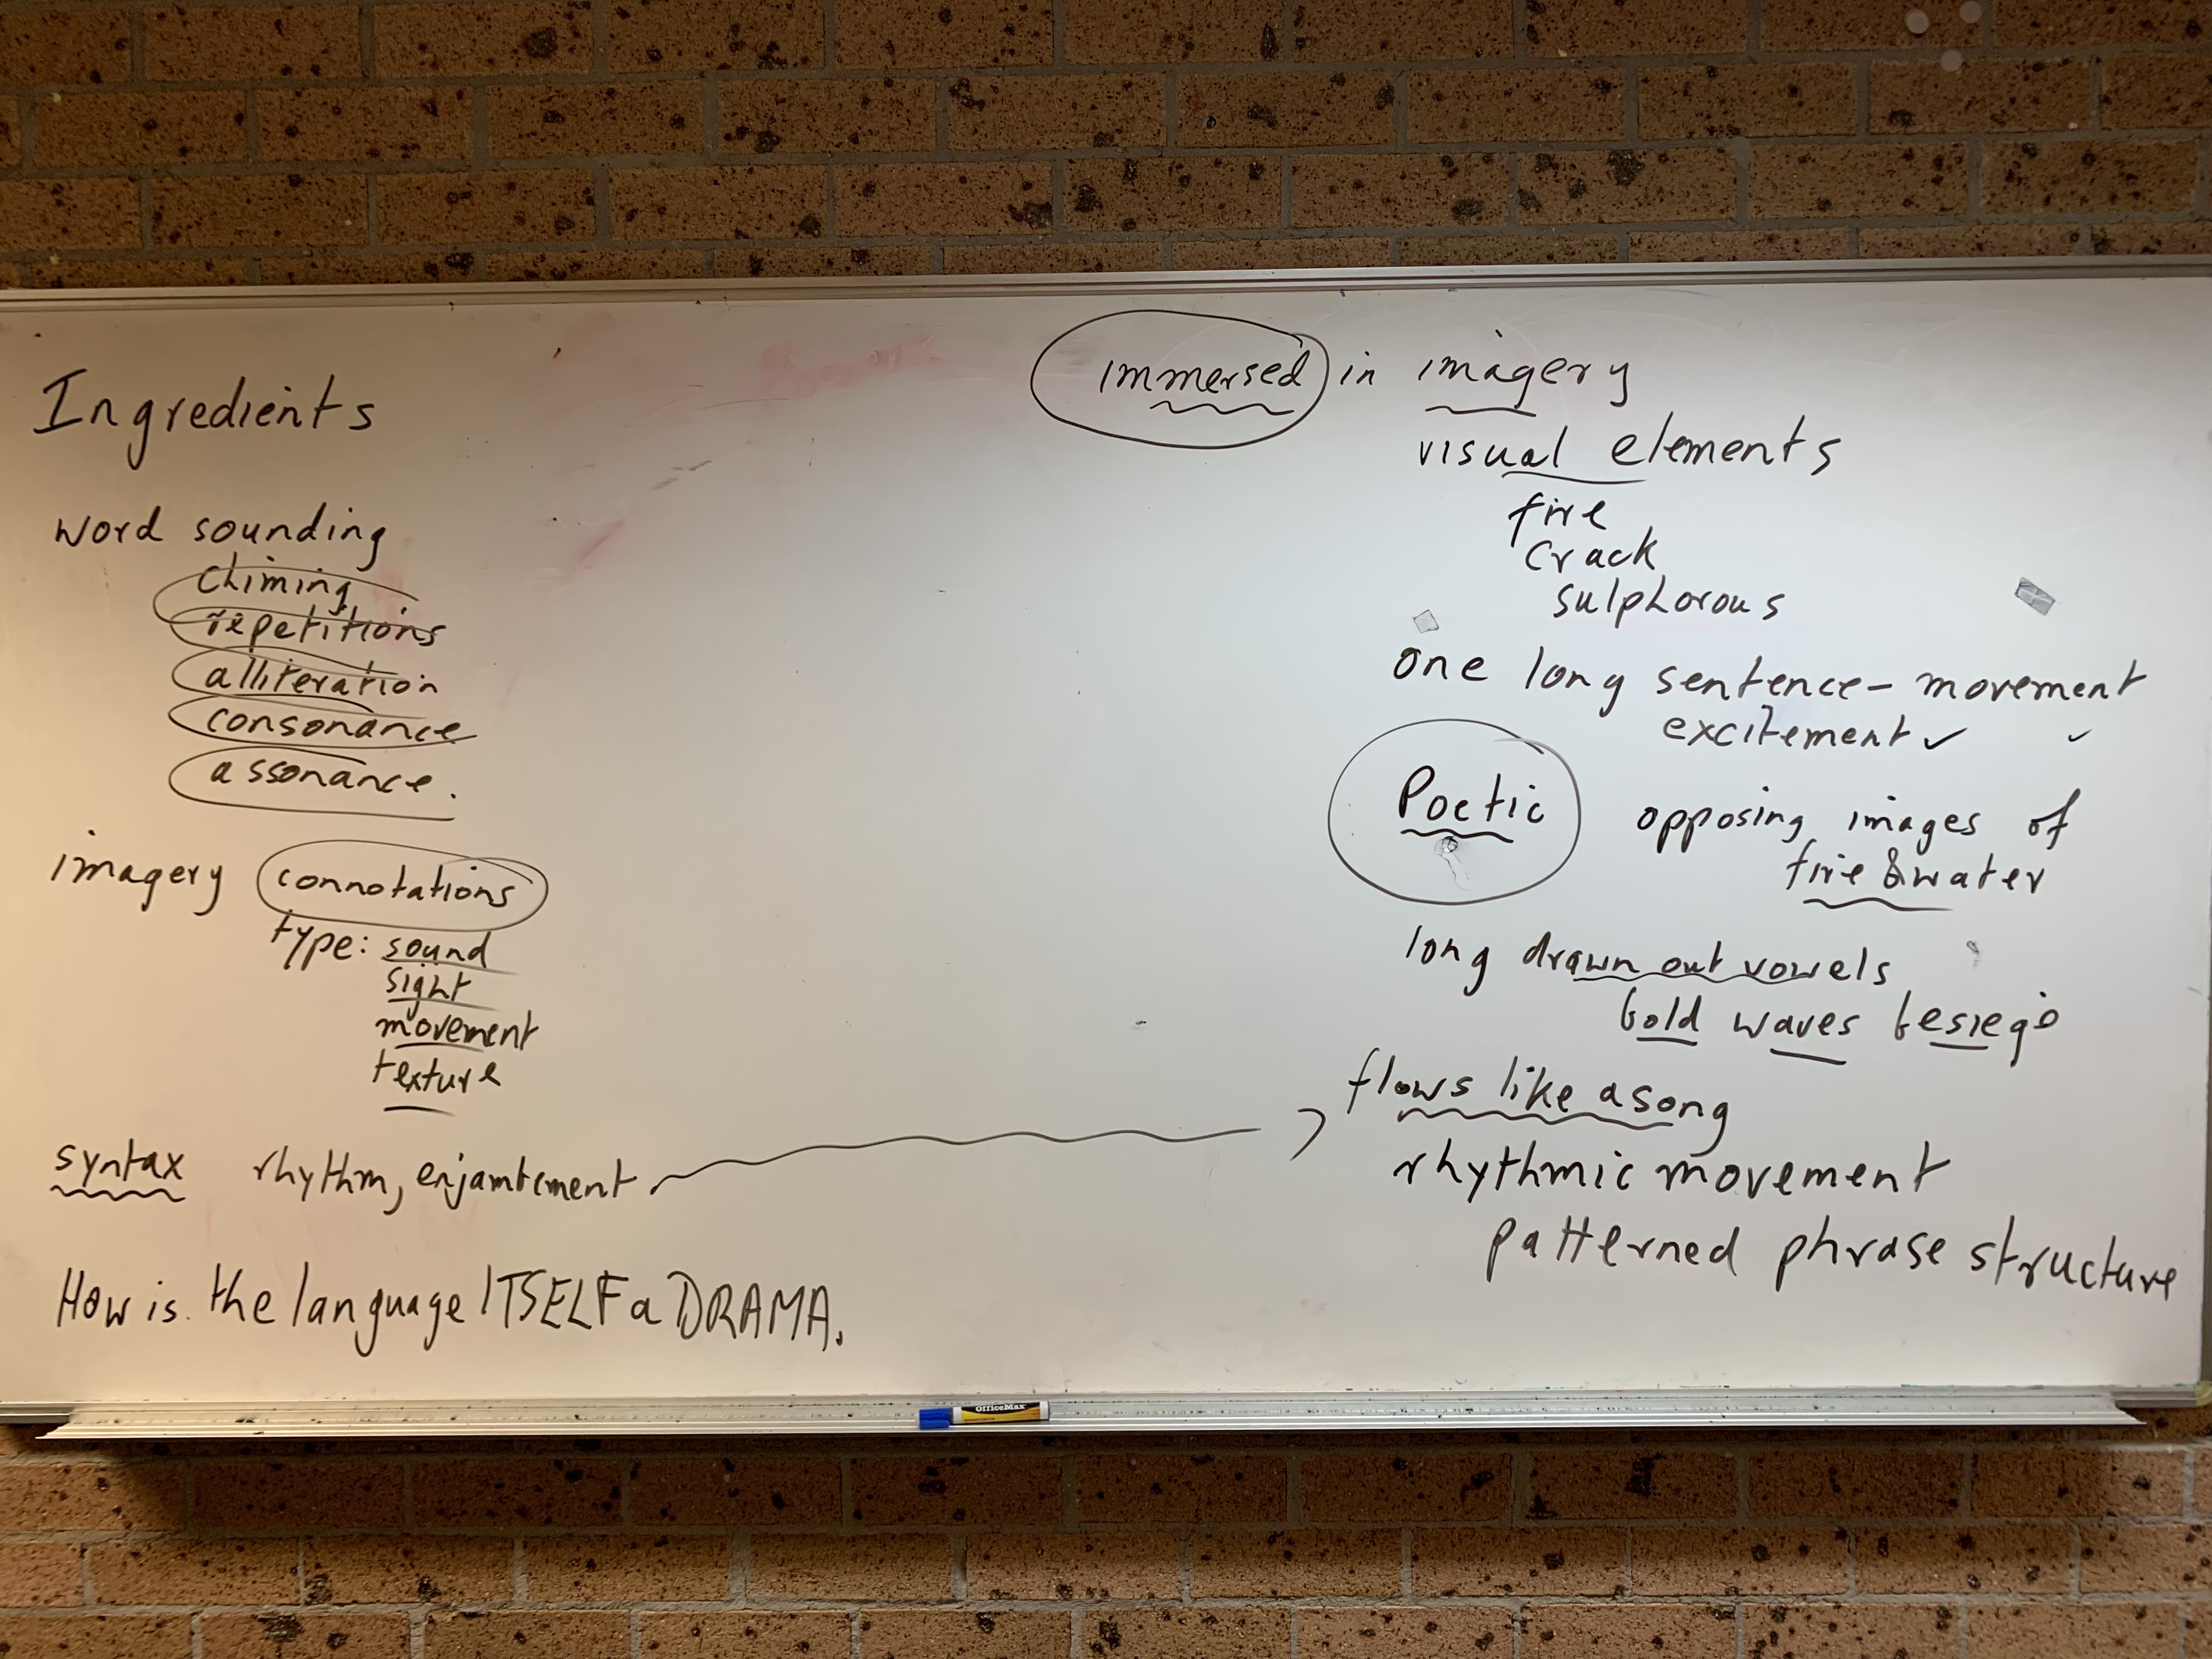 Ingredients
word sounding
chiming
repetitions
alliteration
consonance
assonance.
imagery connotations
type: sound
sight
movement
texture
syntax rhythm, enjambement
How is the language ITSELF a DRAMA.
immersed in imagery
visual elements
fire
crack
sulphorous
one long sentence - movement
excitement ✓ ✓
Poetic opposing images of
fire & water
long drawn out vowels
bold waves besiege
flows like a song
rhythmic movement
patterned phrase structure
OfficeMax